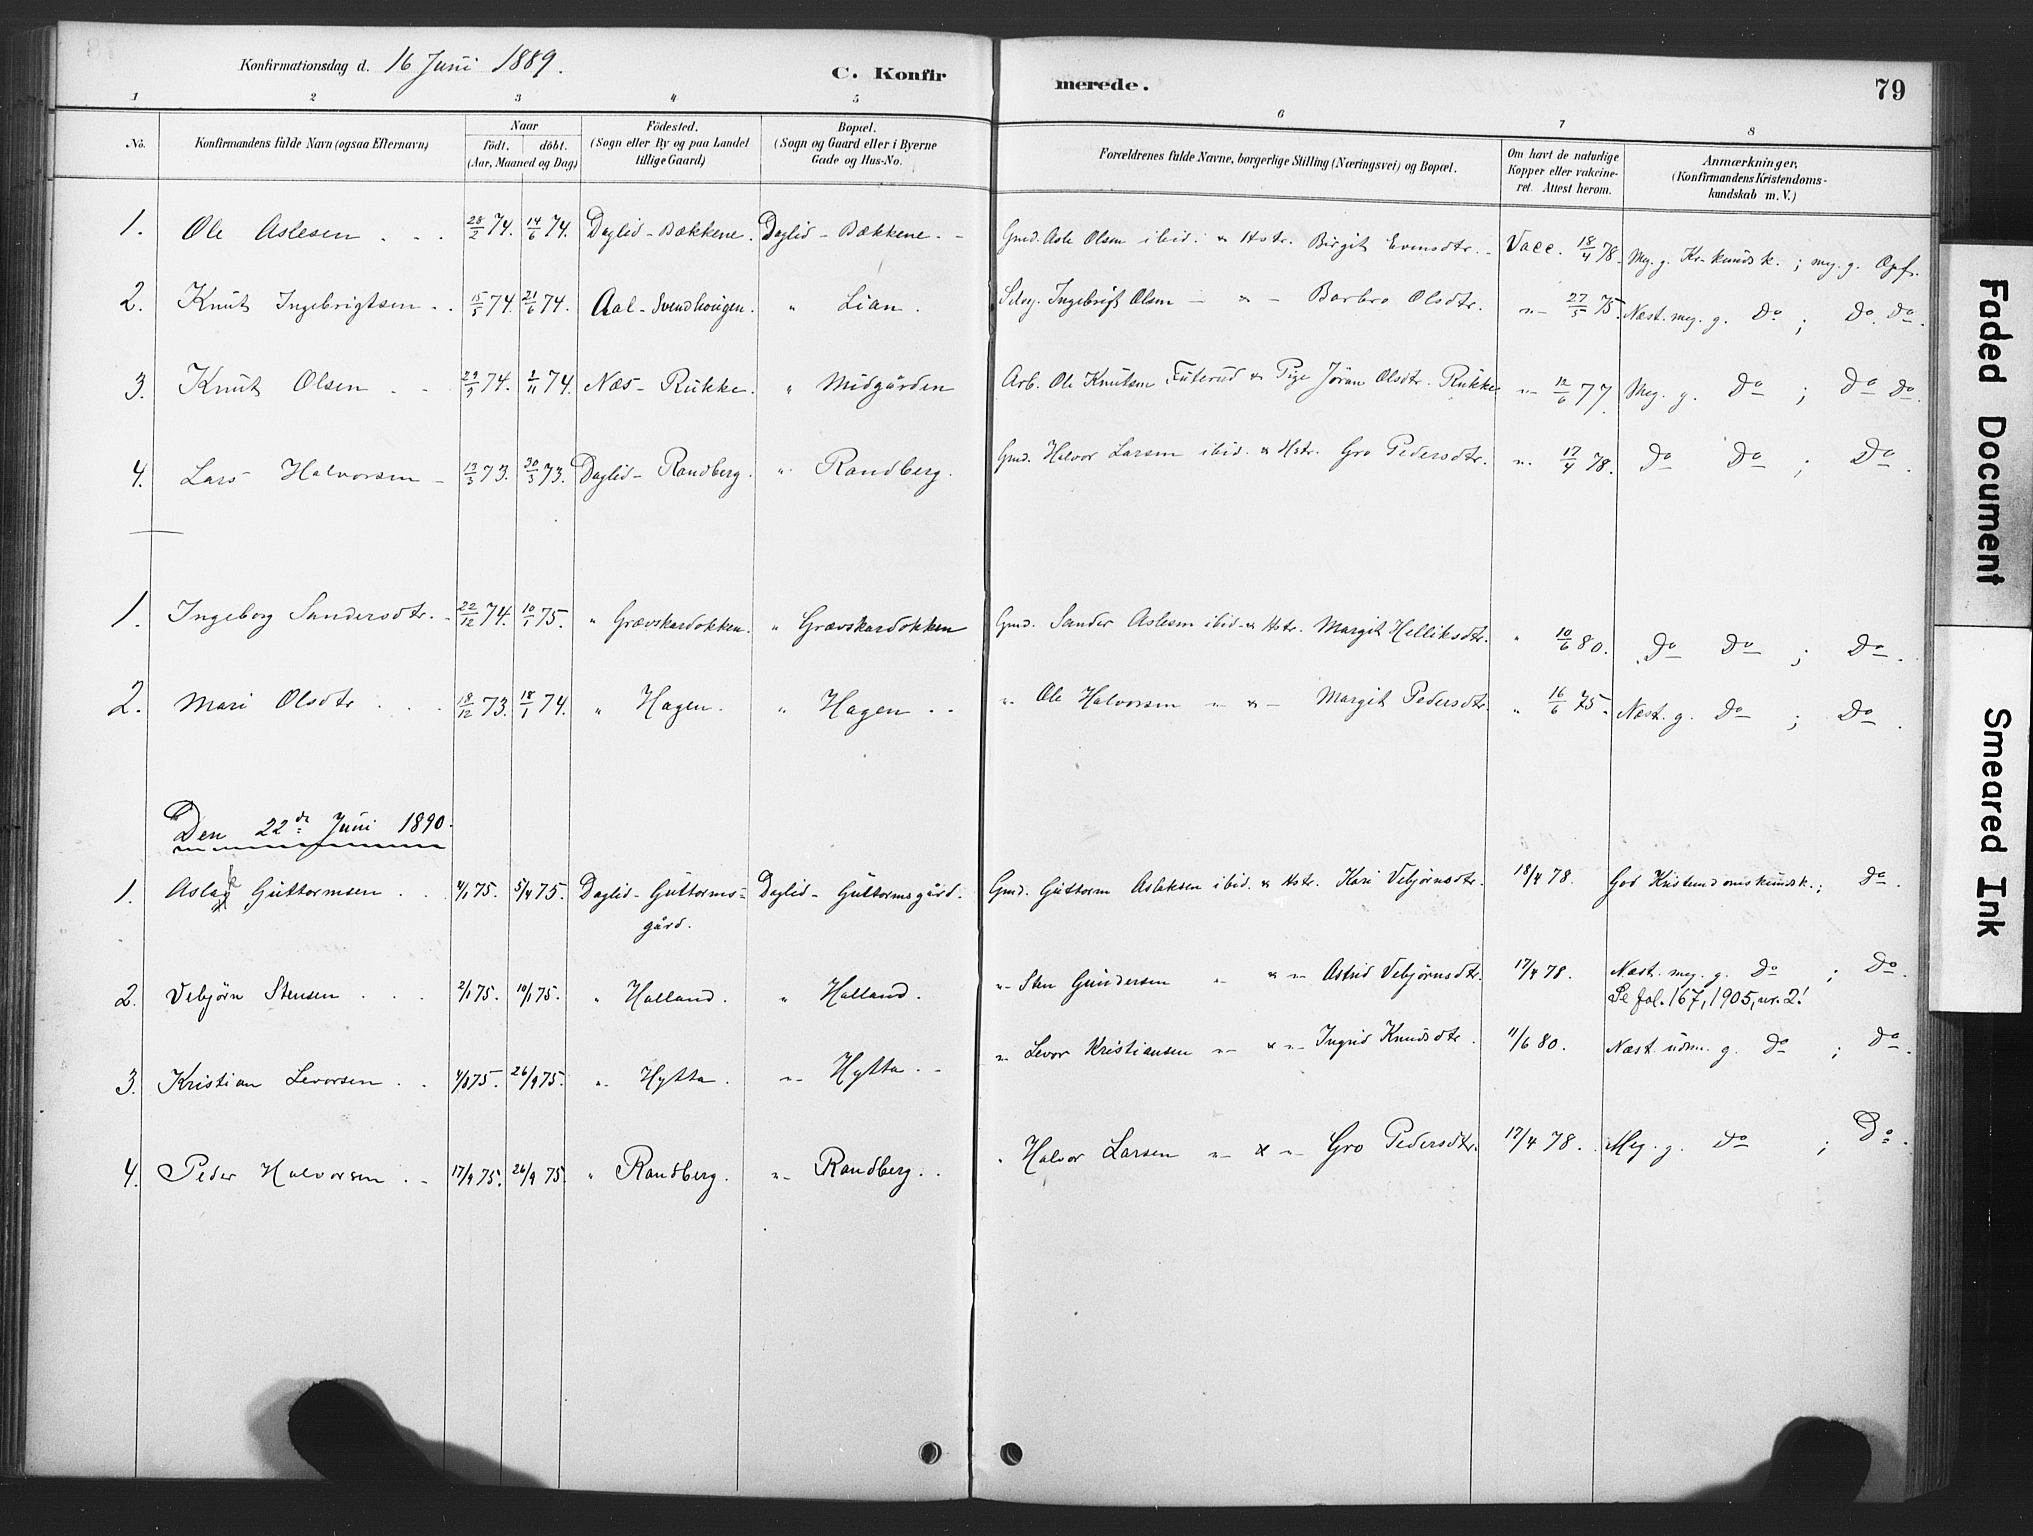 Konfirmationsdag d. 16 Juni 1889.
C. Konfirmerede.
79
1 2 3 4 5 6 7 8
No. Konfirmandens fulde Navn (ogsaa Efternavn) Naar födt. döbt. (Aar, Maaned og Dag) Födested. (Sogn eller By og paa Landet tillige Gaard) Bopæl. (Sogn og Gaard eller i Byerne Gade og Hus-No. Forældrenes fulde Navne, borgerlige Stilling (Næringsvei) og Bopæl. Om havt de naturlige Kopper eller vakcineret. Attest herom. Anmærkninger, (Konfirmandens Kristendomskundskab m. V.)
1. Ole Aslesen 28/2 74. 14/6 74. Daglid - Bækkene. Daglid - Bækkene. Gmd. Asle Olsen ibid. & Hstr. Birgit Evensdtr. Vacc. 18/4 78. Meg. g. Kr-kundsk.; meg. g. Opf.
2. Knut Ingebrigtsen 15/5 74. 21/6 74. Aal - Svendhougen. " Lian. Selvej. Ingebrigt Olsen - " - Barbro Olsdtr. " 27/5 75. Næst. meg. g. Do; Do. Do.
3. Knut Olsen 74. 74. Næs - Rukke. " Midgården Arb. Ole Knutsen Futerud & Pige Jöran Olsdtr. Rukke " 12/6 77. Meg. g. Do; Do Do.
4. Lars Halvorsen 13/3 73. 30/3 73. Daglid - Randberg. " Randberg. Gmd. Halvor Larsen ibid. & Hstr. Gro Pedersdtr. " 17/4 78. Do Do; Do.
1. Ingeborg Sandersdtr. 22/12 74. 10/1 75. " Grævskardokken. " Grævskardokken Gmd. Sander Aslesen ibid. & Hstr. Margit Helliksdtr. " 10/6 80. Do Do; Do.
2. Mari Olsdtr 12 73. 18/1 74. " Hagen. " Hagen " Ole Halvorsen " & - Margit Pedersdtr. " 16/6 75. Næst. g. Do; Do.
Den 22de Juni 1890.
1. Aslak Guttormsen 4/1 75. 5/4 75. Daglid - Guttormsgård. Daglid - Guttormsgård. Gmd. Guttorm Aslaksen ibid. & Hstr. Kari Vebjörnsdtr. 18/4 78. God Kristendomskundsk.; Do.
2. Vebjörn Stensen 2/1 75. 10/1 75. " Halland. " Halland. " Sten Gundersen " & " Astrid Vebjörnsdtr. 17/4 78. Næst. meg. g. Do; Do.
Se fol. 167, 1905, nr. 2!
3. Kristian Levorsen 75. 26/9 75. " Hytta. " Hytta " Levor Kristiansen " & " Ingrid Knudsdtr. 11/6 80. Næst. udm. g. Do; Do.
4. Peder Halvorsen 17/9 75. 26/9 75. " Randberg. " Randberg " Halvor Larsen " & " Gro Pedersdtr. 17/4 78. Meg. g. Do; Do.
Faded Document
Smeared Ink